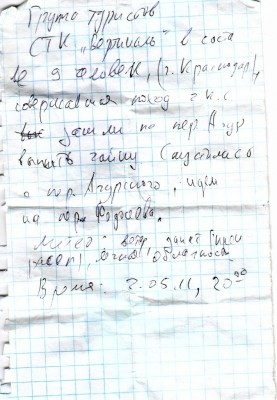 Группа туристов
СТК "Вертикаль" в соста
ве 9 человек, (г. Краснодар),
совершавшая поход 2 к.с
зашли на пер. Агур
выпить чайку. Спустились
с пер. Агурского, идем
на пер.
Метео: ветер,
облачность
Время: 2.05.11, 20⁰⁰